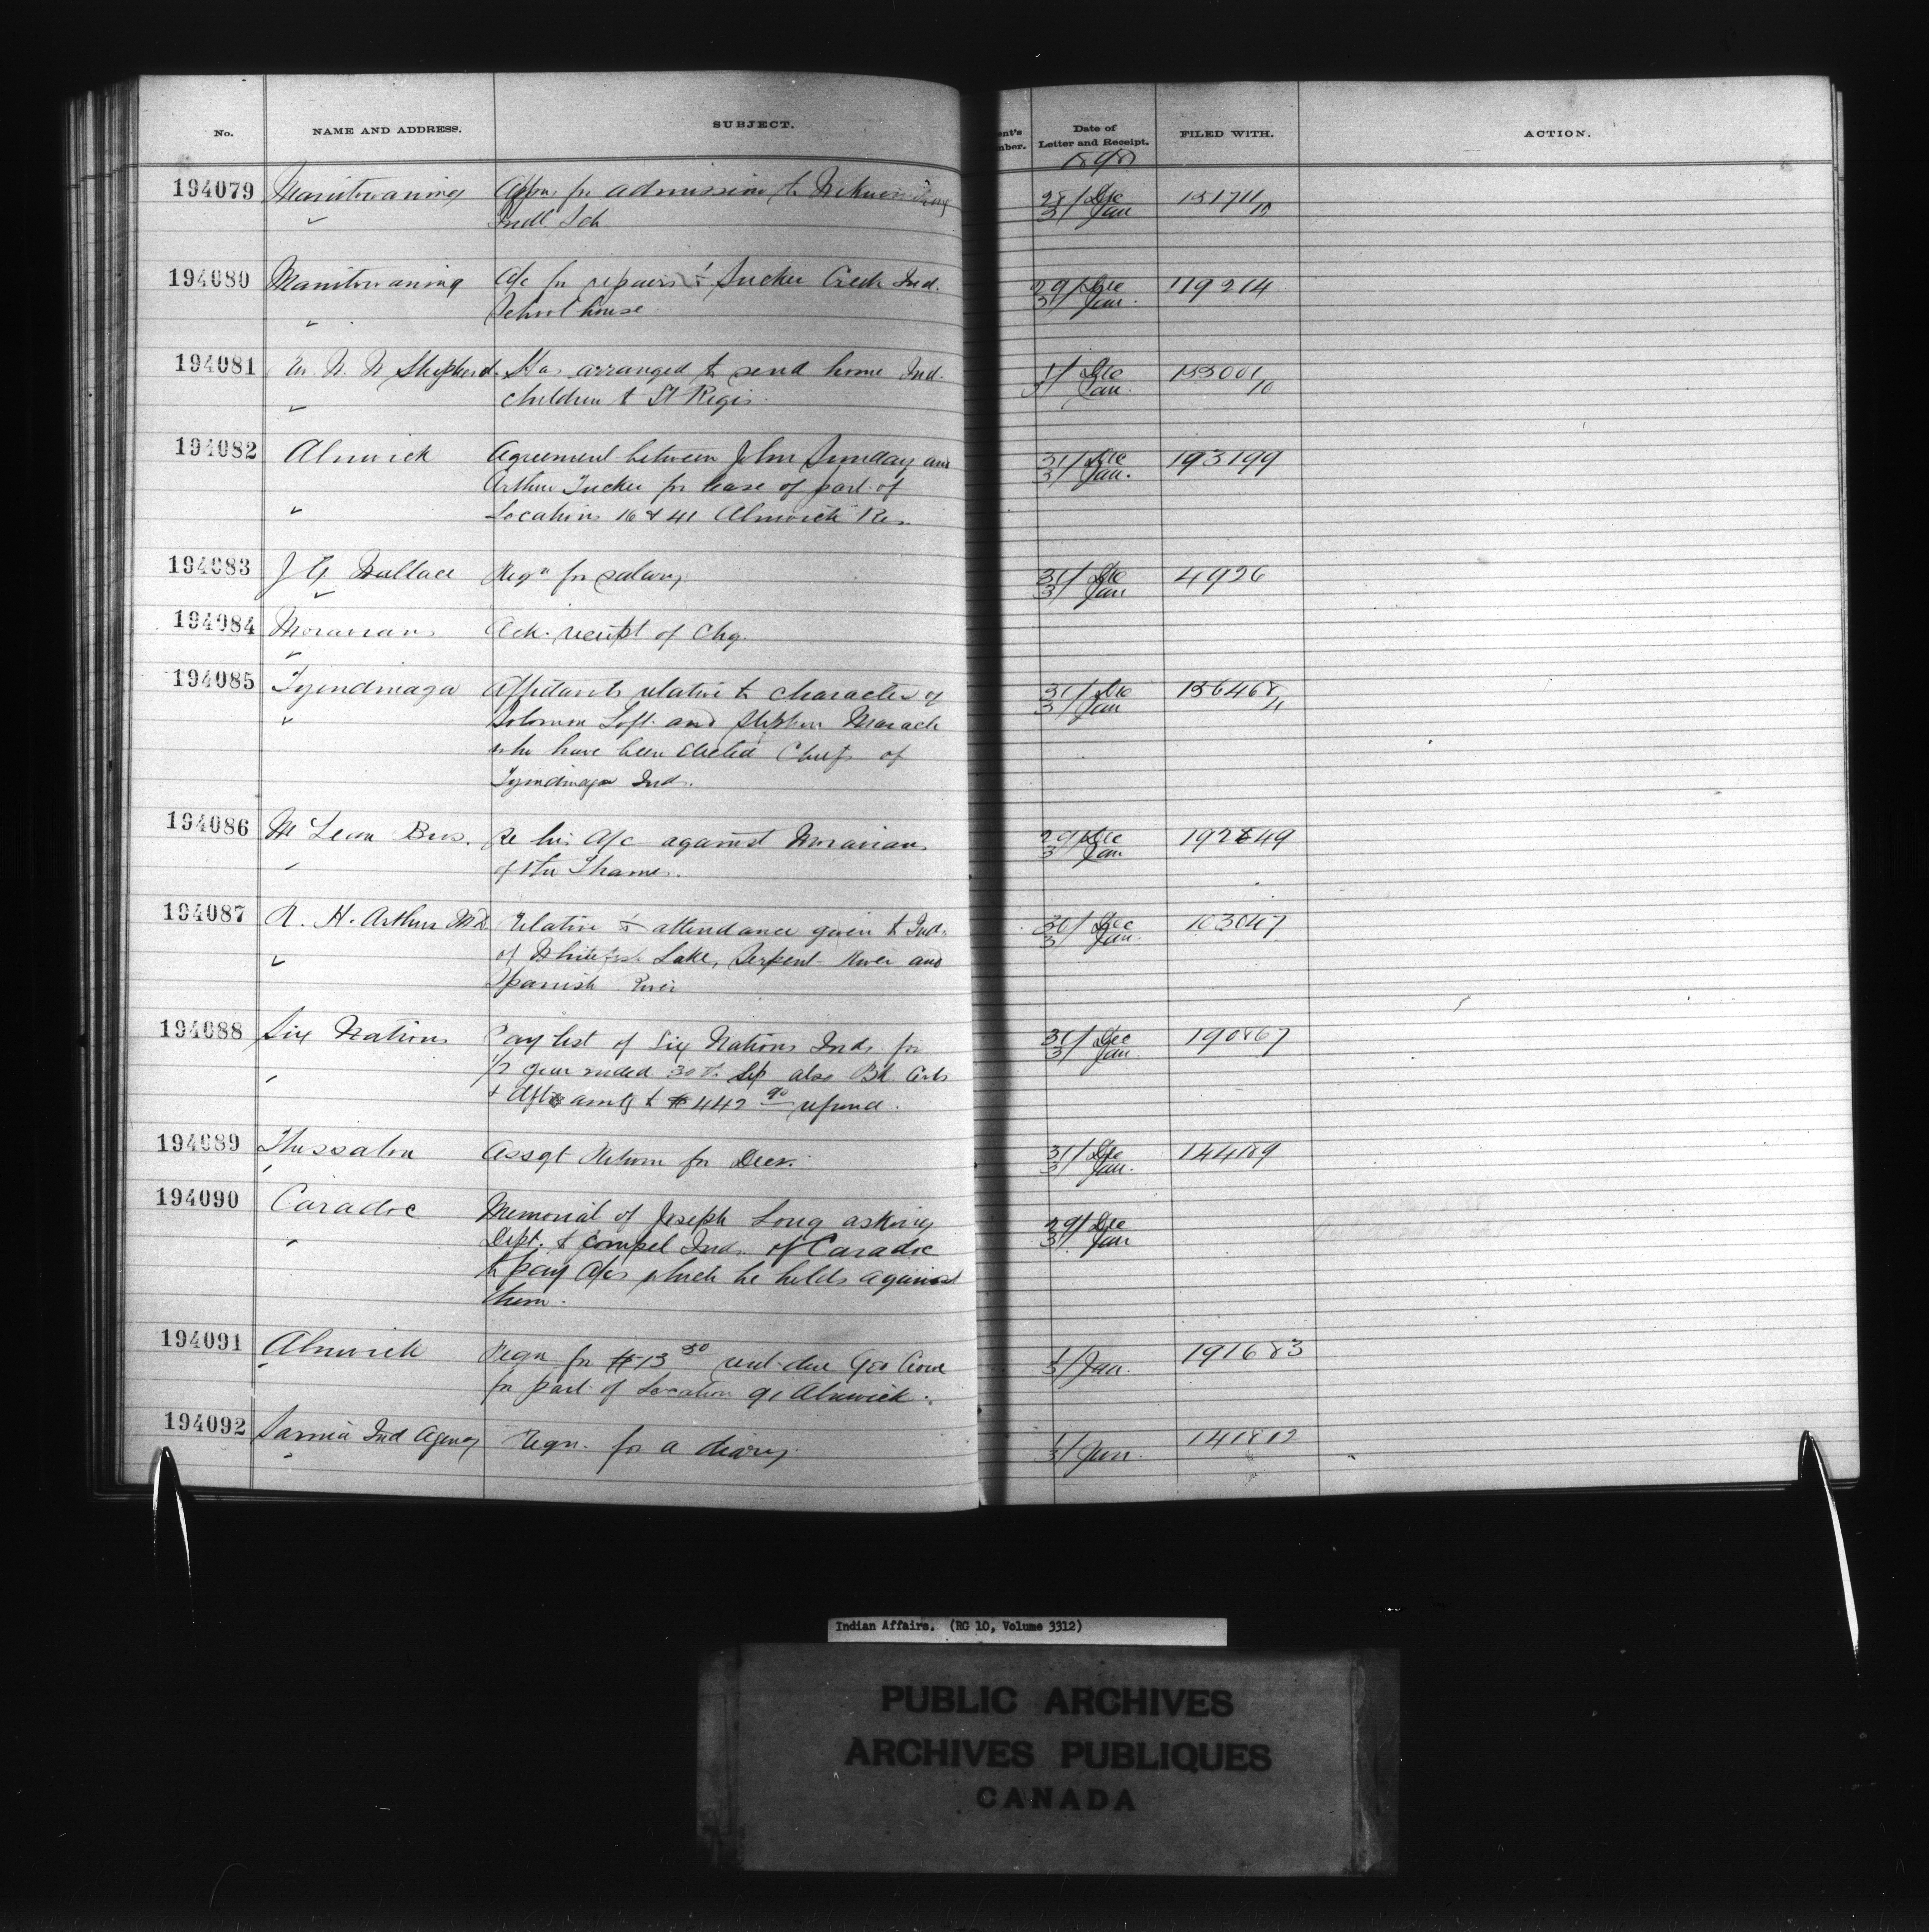 No. NAME AND ADDRESS. SUBJECT. ent's mber. Date of Letter and Receipt. FILED WITH. ACTION.
1898
194079 Manitowaning Appns for admission to Wikwemikong 28/ Dec 151711
Indl Sch. 3/ Jan 10
194080 Manitowaning A/c for repairs to Sucker Creek Ind. 29/ Dec 119214
School house 3/ Jan.
194081 Shepherd. Has arranged to send home Ind. 1/ Dec 133001
children to St Regis. 3/ Jan. 10
194082 Alnwick Agreement between John Sunday and 31/ Dec 193199
Arthur Tucker for lease of part of 3/ Jan.
Locations 16 & 41 Alnwick Res.
194083 J G Wallace Reqn for salary. 31/ Dec 4926
3/ Jan
194084 Moravians Ack. receipt of chq.
194085 Tyendinaga Affidavits relative to character of 31/ Dec 156468
Solomon Loft and Stephen Maracle 3/ Jan 4
who have been elected Chiefs of
Tyendinaga Inds.
194086 McLean Bros. Re his A/c against Moravians 29/ Dec 192649
of the Thames. 3/ Jan
194087 R. H. Arthur M.D. Relative to attendance given to Inds. 30/ Dec 103047
of Whitefish Lake, Serpent River and 3/ Jan.
Spanish River
194088 Six Nations Pay list of Six Nations Inds. for 31/ Dec 190867
1/2 year ended 30th Sep also Bk. 3/ Jan.
& dfts amtg to $442 90 refund.
194089 Thessalon Assgt Return for Decr. 31/ Dec 144189
3/ Jan.
194090 Caradoc Memorial of Joseph Long asking 29/ Dec
Dept. to compel Inds. of Caradoc 3/ Jan
to pay A/cs which he holds against
them.
194091 Alnwick Reqn for $13 50 rent due Geo Crowe 1/ 191683
for part of Location 91 Alnwick. 3/ Jan.
194092 Sarnia Ind Agency Reqn. for a diary. 1/ 141812
3/ Jan.
Indian Affairs. (RG 10, Volume 3312)
PUBLIC ARCHIVES
ARCHIVES PUBLIQUES
CANADA